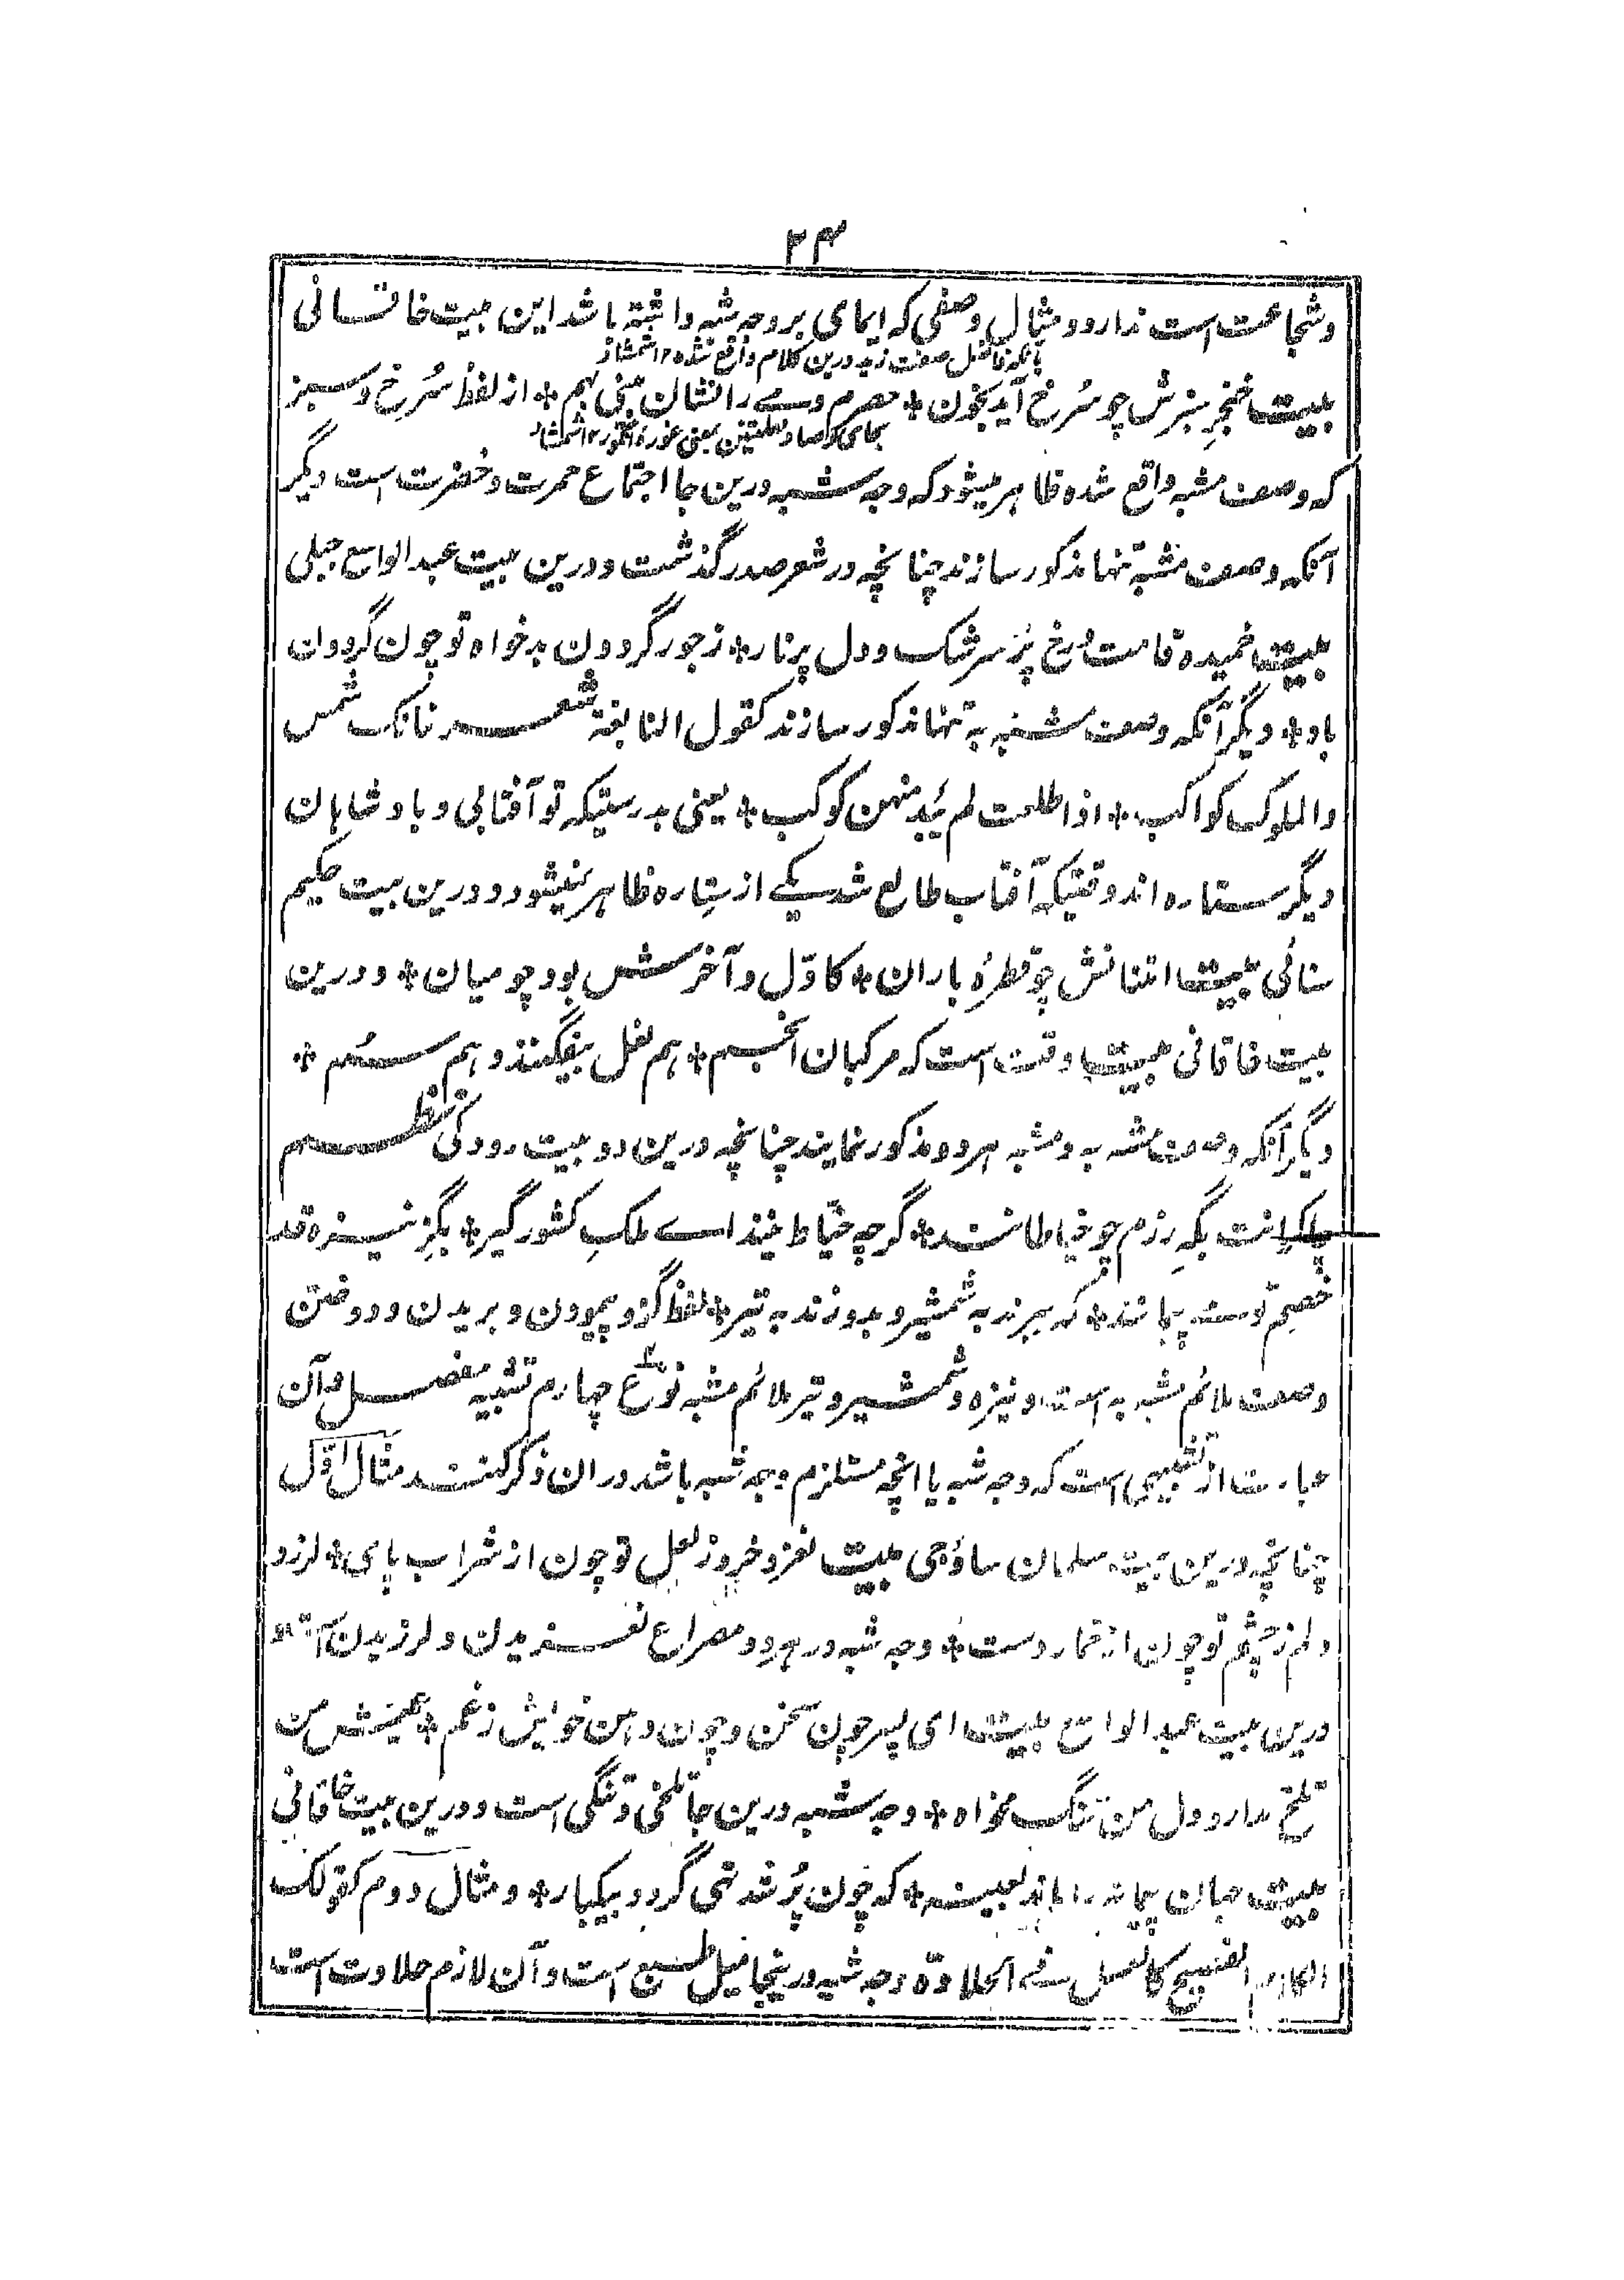 ۳۴
وشجاعت است ندارد ومثال وصفی که ایمای بر وجه شبه داشته باشد این بیت خاقانی
بانکه فاضل صفت زید درین کلام واقع نشده ۱۲
بیت خنجر سبزش چو سرخ آید بخون * حصرم ومے را نشان بینی بهم * از لفظ سُرخ وسبز
بحای وصاد مهملتین بمعنی غوره انگور ۱۲
که وصف مشبه واقع شده ظاهر میشود که وجه شبه درین جا اجتماع حمرت وخضرت است دیگر
آنکه وصف مشبه تنها مذکور سازند چنانچه در شعر صدر گذشت ودرین بیت عبد الواسع جبلی
بیت خمیده قامت ورخ پُر سرشک ودل پر نار * ز جور گردون بدخواه تو چون گردان
باد * دیگر آنکه وصف مشبه به تنها مذکور سازند کقول النابغة شعر فانک شمس
والملوک کواکب * اذا طلعت لم یَبدُ منهن کوکب * یعنی بدرستیکه تو آفتابی وبادشاهان
دیگر ستاره اند وقتیکه آفتاب طالع شد یکے از ستاره ظاهر نمیشود ودرین بیت حکیم
سنائی بیت امتنانش چو قطرهٔ باران * کاوّل وآخرشس بود چو میان * ودرین
بیت خاقانی بیت وقت است که مرکبان انجم * هم نعل بیفگنند وهم سُم *
دیگر آنکه وصف مشبه به ومشبه هر دو مذکور نمایند چنانچه درین دو بیت رودکی نظم
چاکرانت بگهِ رزم چو خیاطانند * گرچه خیّاط نیند اے ملکِ کشورگیر * بگزِ نیزه قد
خصمِ تو مے پیمانند * که ببرند به شمشیر وبدوزند به تیر * لفظ گز وپیمودن وبریدن ودوختن
وصف ملائم مشبه به است ونیزه وشمشیر وتیر ملائم مشبه نوع چهارم تشبیه مفصل وآن
عبارت از تشبیهی است که وجه شبه یا انچه مستلزم وجه شبه باشد دران ذکر کنند مثال اوّل
چنانچه درین بیت سلمان ساوجی بیت لغزد خرد ز لعل تو چون از شراب پای * لرزد
دلم ز چشم تو چون از خمار دست * وجه شبه در هر دو مصراع لغزیدن ولرزیدن است و
درین بیت عبد الواسع بیت ای پسر چون سخن وچون دهن خویش ز غم * عیش من
تلخ مدار ودل من تنگ مخواه * وجه شبه درین جا تلخی وتنگی است ودرین بیت خاقانی
بیت جهان پیمانه را ماند بعینه * که چون پُر شد تهی گردد بیکبار * ومثال دوم کقولک
الکلام الفصیح کالعسل فے الحلاوة وجه شبه درینجا میل طبع است وآن لازم حلاوت است